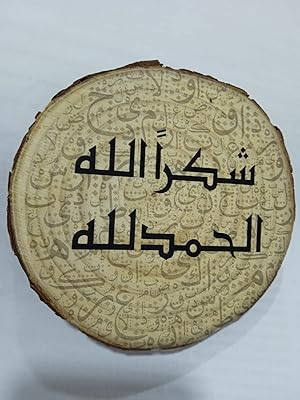 شكراً الله
الحمدلله